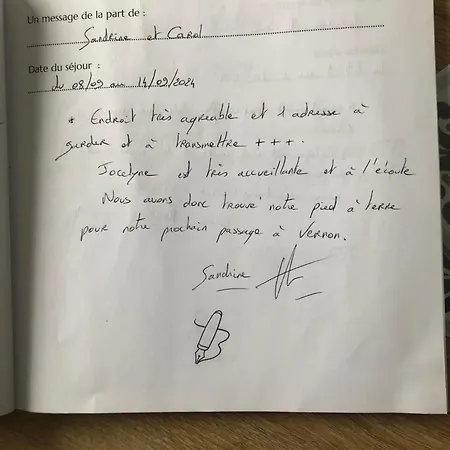 Un message de la part de :
Sandrine et Carol
Date du séjour :
du 08/09 au 14/09/2024
* Endroit très agreable et 1 adresse à
garder et à transmettre +++.
Jocelyne est très accueillante et à l'écoute
Nous avons donc trouvé notre pied à terre
pour notre prochain passage à Vernon.
Sandrine